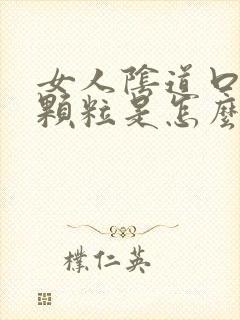 女人陰道口
顆粒是怎麼
樸仁英